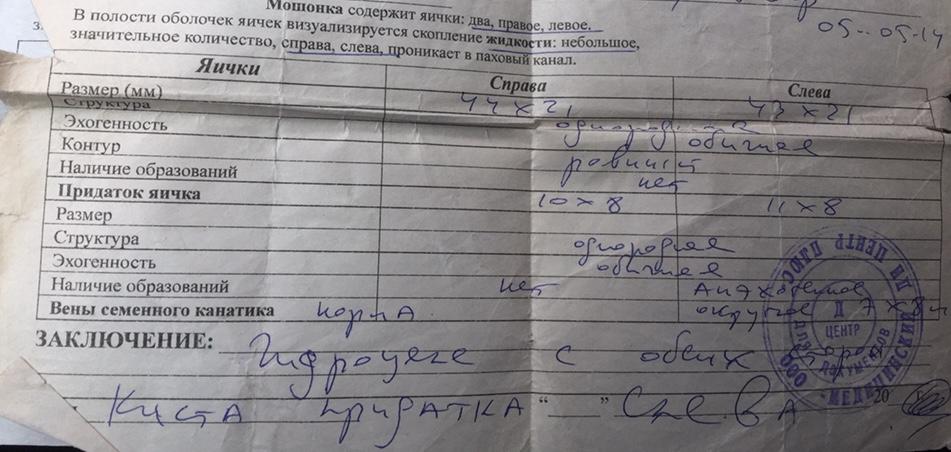 Мошонка содержит яички: два, правое, левое.
05-05-14
В полости оболочек яичек визуализируется скопление жидкости: небольшое,
значительное количество, справа, слева, проникает в паховый канал.
Яички Справа Слева
Размер (мм) 44 x 21 43 x 21
Структура однородная
Эхогенность обычная
Контур ровный
Наличие образований нет
Придаток яичка
Размер 10 x 8 11 x 8
Структура однородная
Эхогенность обычная
Наличие образований нет Анэхогенное
округлое 7 x 8
Вены семенного канатика норма
ЗАКЛЮЧЕНИЕ: Гидроцеле с обеих сторон
Киста придатка “ ” слева 20
ООО МЕДИЦИНСКИЙ ЦЕНТР ПЛЮС
ЦЕНТР
ДЛЯ ДОКУМЕНТОВ